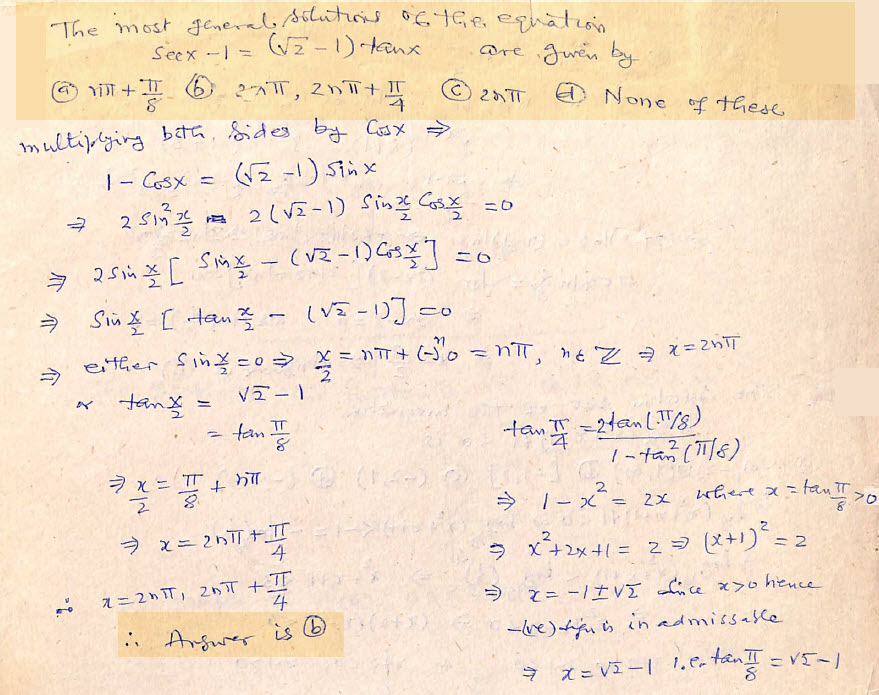 The most general solutions of the equation
Secx - 1 = (√2 - 1) tanx are given by
(a) nπ + π/8 (b) 2nπ, 2nπ + π/4 (c) 2nπ (d) None of these
multiplying both sides by Cosx ⇒
1 - Cosx = (√2 - 1) Sinx
⇒ 2 Sin² x/2 - 2(√2 - 1) Sin x/2 Cos x/2 = 0
⇒ 2 Sin x/2 [ Sin x/2 - (√2 - 1) Cos x/2 ] = 0
⇒ Sin x/2 [ tan x/2 - (√2 - 1)] = 0
⇒ either Sin x/2 = 0 ⇒ x/2 = nπ + (-)ⁿ0 = nπ, n ∈ Z ⇒ x = 2nπ
or tan x/2 = √2 - 1
= tan π/8
⇒ x/2 = π/8 + nπ
⇒ x = 2nπ + π/4
∴ x = 2nπ, 2nπ + π/4
∴ Answer is (b)
tan π/4 = 2tan(π/8) / 1 - tan²(π/8)
⇒ 1 - x² = 2x where x = tan π/8 > 0
⇒ x² + 2x + 1 = 2 ⇒ (x+1)² = 2
⇒ x = -1 ± √2 Since x > 0 hence
-(ve) sign is inadmissable
⇒ x = √2 - 1 i.e. tan π/8 = √2 - 1